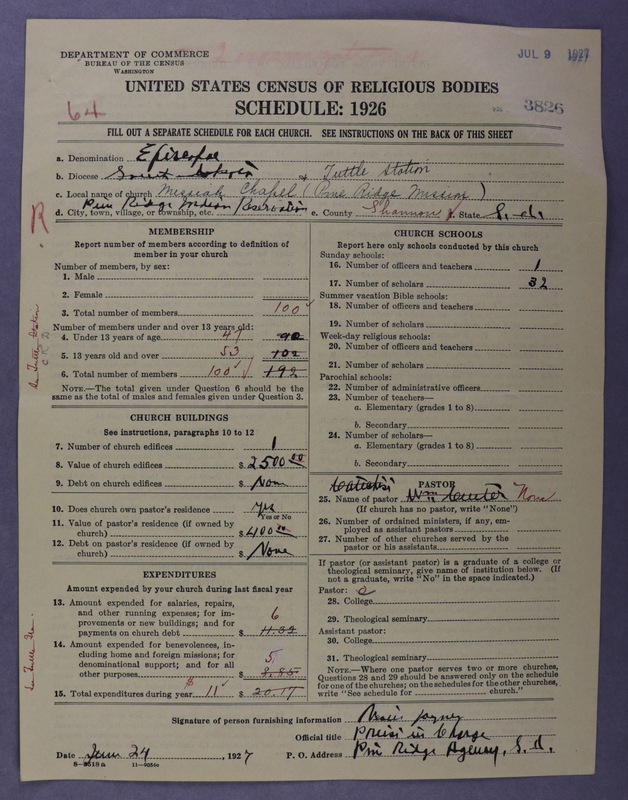 DEPARTMENT OF COMMERCE
BUREAU OF THE CENSUS
WASHINGTON
JUL 9 1927
UNITED STATES CENSUS OF RELIGIOUS BODIES
64
SCHEDULE: 1926
3826
FILL OUT A SEPARATE SCHEDULE FOR EACH CHURCH. SEE INSTRUCTIONS ON THE BACK OF THIS SHEET
a. Denomination Episcopal
b. Diocese South Dakota & Tuttle Station
c. Local name of church Messiah Chapel (Pine Ridge Mission)
d. City, town, village, or township, etc. Pine Ridge Indian Reservation e. County Shannon f. State S. d.
R
MEMBERSHIP
Report number of members according to definition of
member in your church
Number of members, by sex:
1. Male
2. Female
3. Total number of members 100
Number of members under and over 13 years old:
4. Under 13 years of age 47 90
5. 13 years old and over 53 102
6. Total number of members 100 192
NOTE.—The total given under Question 6 should be the
same as the total of males and females given under Question 3.
CHURCH BUILDINGS
See instructions, paragraphs 10 to 12
7. Number of church edifices 1
8. Value of church edifices $ 2500 00
9. Debt on church edifices $ None
10. Does church own pastor's residence yes
Yes or No
11. Value of pastor's residence (if owned by
church) $ 400 00
12. Debt on pastor's residence (if owned by
church) $ None
EXPENDITURES
Amount expended by your church during last fiscal year
13. Amount expended for salaries, repairs,
and other running expenses; for im-
provements or new buildings; and for
payments on church debt $ 6 11.32
14. Amount expended for benevolences, in-
cluding home and foreign missions; for
denominational support; and for all
other purposes $ 5 8.85
15. Total expenditures during year $ 11 $ 20.17
CHURCH SCHOOLS
Report here only schools conducted by this church
Sunday schools:
16. Number of officers and teachers 1
17. Number of scholars 32
Summer vacation Bible schools:
18. Number of officers and teachers
19. Number of scholars
Week-day religious schools:
20. Number of officers and teachers
21. Number of scholars
Parochial schools:
22. Number of administrative officers
23. Number of teachers—
a. Elementary (grades 1 to 8)
b. Secondary
24. Number of scholars—
a. Elementary (grades 1 to 8)
b. Secondary
PASTOR
25. Name of pastor Wm None
(If church has no pastor, write "None")
26. Number of ordained ministers, if any, em-
ployed as assistant pastors
27. Number of other churches served by the
pastor or his assistants
If pastor (or assistant pastor) is a graduate of a college or
theological seminary, give name of institution below. (If
not a graduate, write "No" in the space indicated.)
Pastor:
28. College
29. Theological seminary
Assistant pastor:
30. College
31. Theological seminary
NOTE.—Where one pastor serves two or more churches,
Questions 28 and 29 should be answered only on the schedule
for one of the churches; on the schedules for the other churches,
write "See schedule for church."
Signature of person furnishing information
Official title Priest in Charge
Date June 24, 1927 P. O. Address Pine Ridge Agency, S. d.